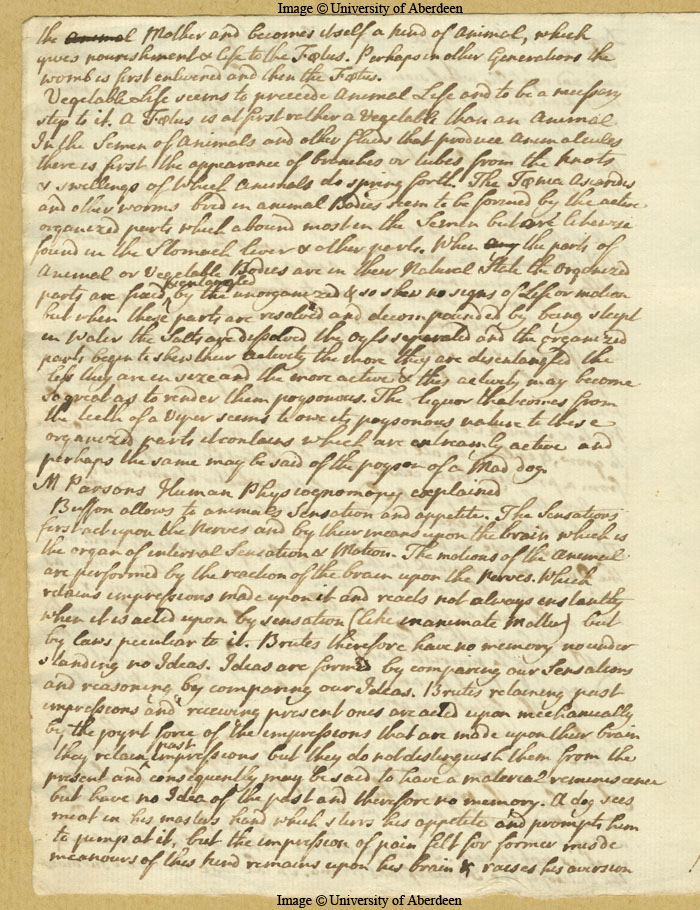 Image © University of Aberdeen
the animal Mother and becomes itself a kind of Animal, which
gives nourishment & life to the Fœtus. Perhaps in other Generations the
womb is first enlivened and then the Fœtus.
Vegetable Life seems to precede Animal Life and to be a necessary
step to it. A Fœtus is at first rather a Vegetable than an Animal
In the Semen of Animals and other fluids that produce Animalcules
there is first the appearance of branches or tubes from the knots
& swellings of which animals do spring forth. The Tænia Ascarides
and other worms bred in animal Bodies seem to be formed by the active
organized parts which abound most in the Semen but are likewise
found in the Stomach liver & other parts. When any the parts of
Animal or Vegetable Bodies are in their Natural State the organized
parts are fixed & entangled by the unorganized & so shew no signs of Life or motion
but when these parts are resolved and decompounded by being steept
in Water the Salts are dissolved the Oyls separated and the Organized
parts begin to shew their activity the more they are disentangled the
less they are in seze and the more active & this activity may become
so great as to render them poysonous. The liquor that comes from
the teeth of a Viper seems to owe its poysonous nature to these
organized parts it contains which are extreamly active and
perhaps the same may be said of the poyson of a Mad dog.
M Parsons Human Physiognomony explained
Buffon allows to animals Sensation and appetite. The Sensations
first act upon the Nerves and by their means upon the brain which is
the organ of internal Sensation & Motion. The motions of the Animal
are performed by the reaction of the brain upon the Nerves. Which
retains impressions made upon it and reacts not always instantly
when it is acted upon by sensation (like inanimate Matter) but
by laws peculiar to it. Brutes therefore have no memory no under
standing no Ideas. Ideas are formed by comparing our Sensations
and reasoning by comparing our Ideas. Brutes retaining past
impressions and receiving present ones are acted upon mechanically
by the joynt force of the impressions that are made upon their brain
they retain past impressions but they do not distinguish them from the
present and consequently may be said to have a material reminiscence
but have no Idea of the past and therefore no memory. A dog sees
meat in his masters hand which stirrs his appetite and prompts him
to jump at it, but the impression of pain felt for former misde
meanours of this kind remains upon his brain & raises his aversion
Image © University of Aberdeen